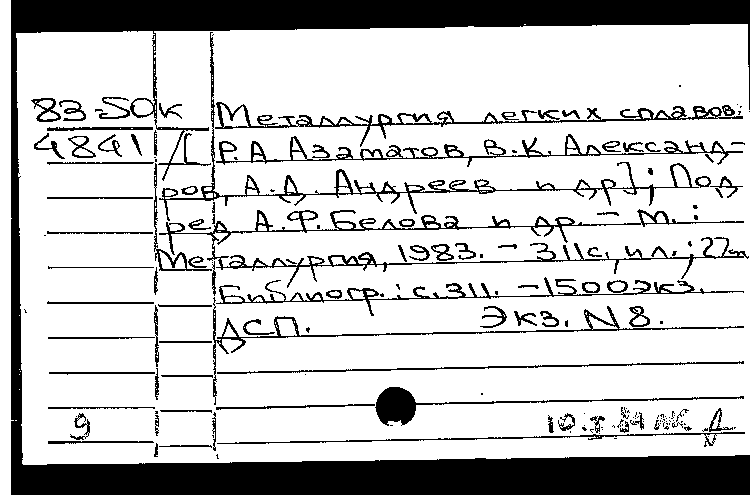 83-50к Металлургия легких сплавов:
4841 /[Р.А. Азаматов, В.К. Александ-
ров, А.Д. Андреев и др]; Под
ред А.Ф. Белова и др. - М.:
Металлургия, 1983. - 311с., ил.; 22см
Библиогр.: с.311. -1500экз.
ДСП. Экз. N 8.
9 10.I.84